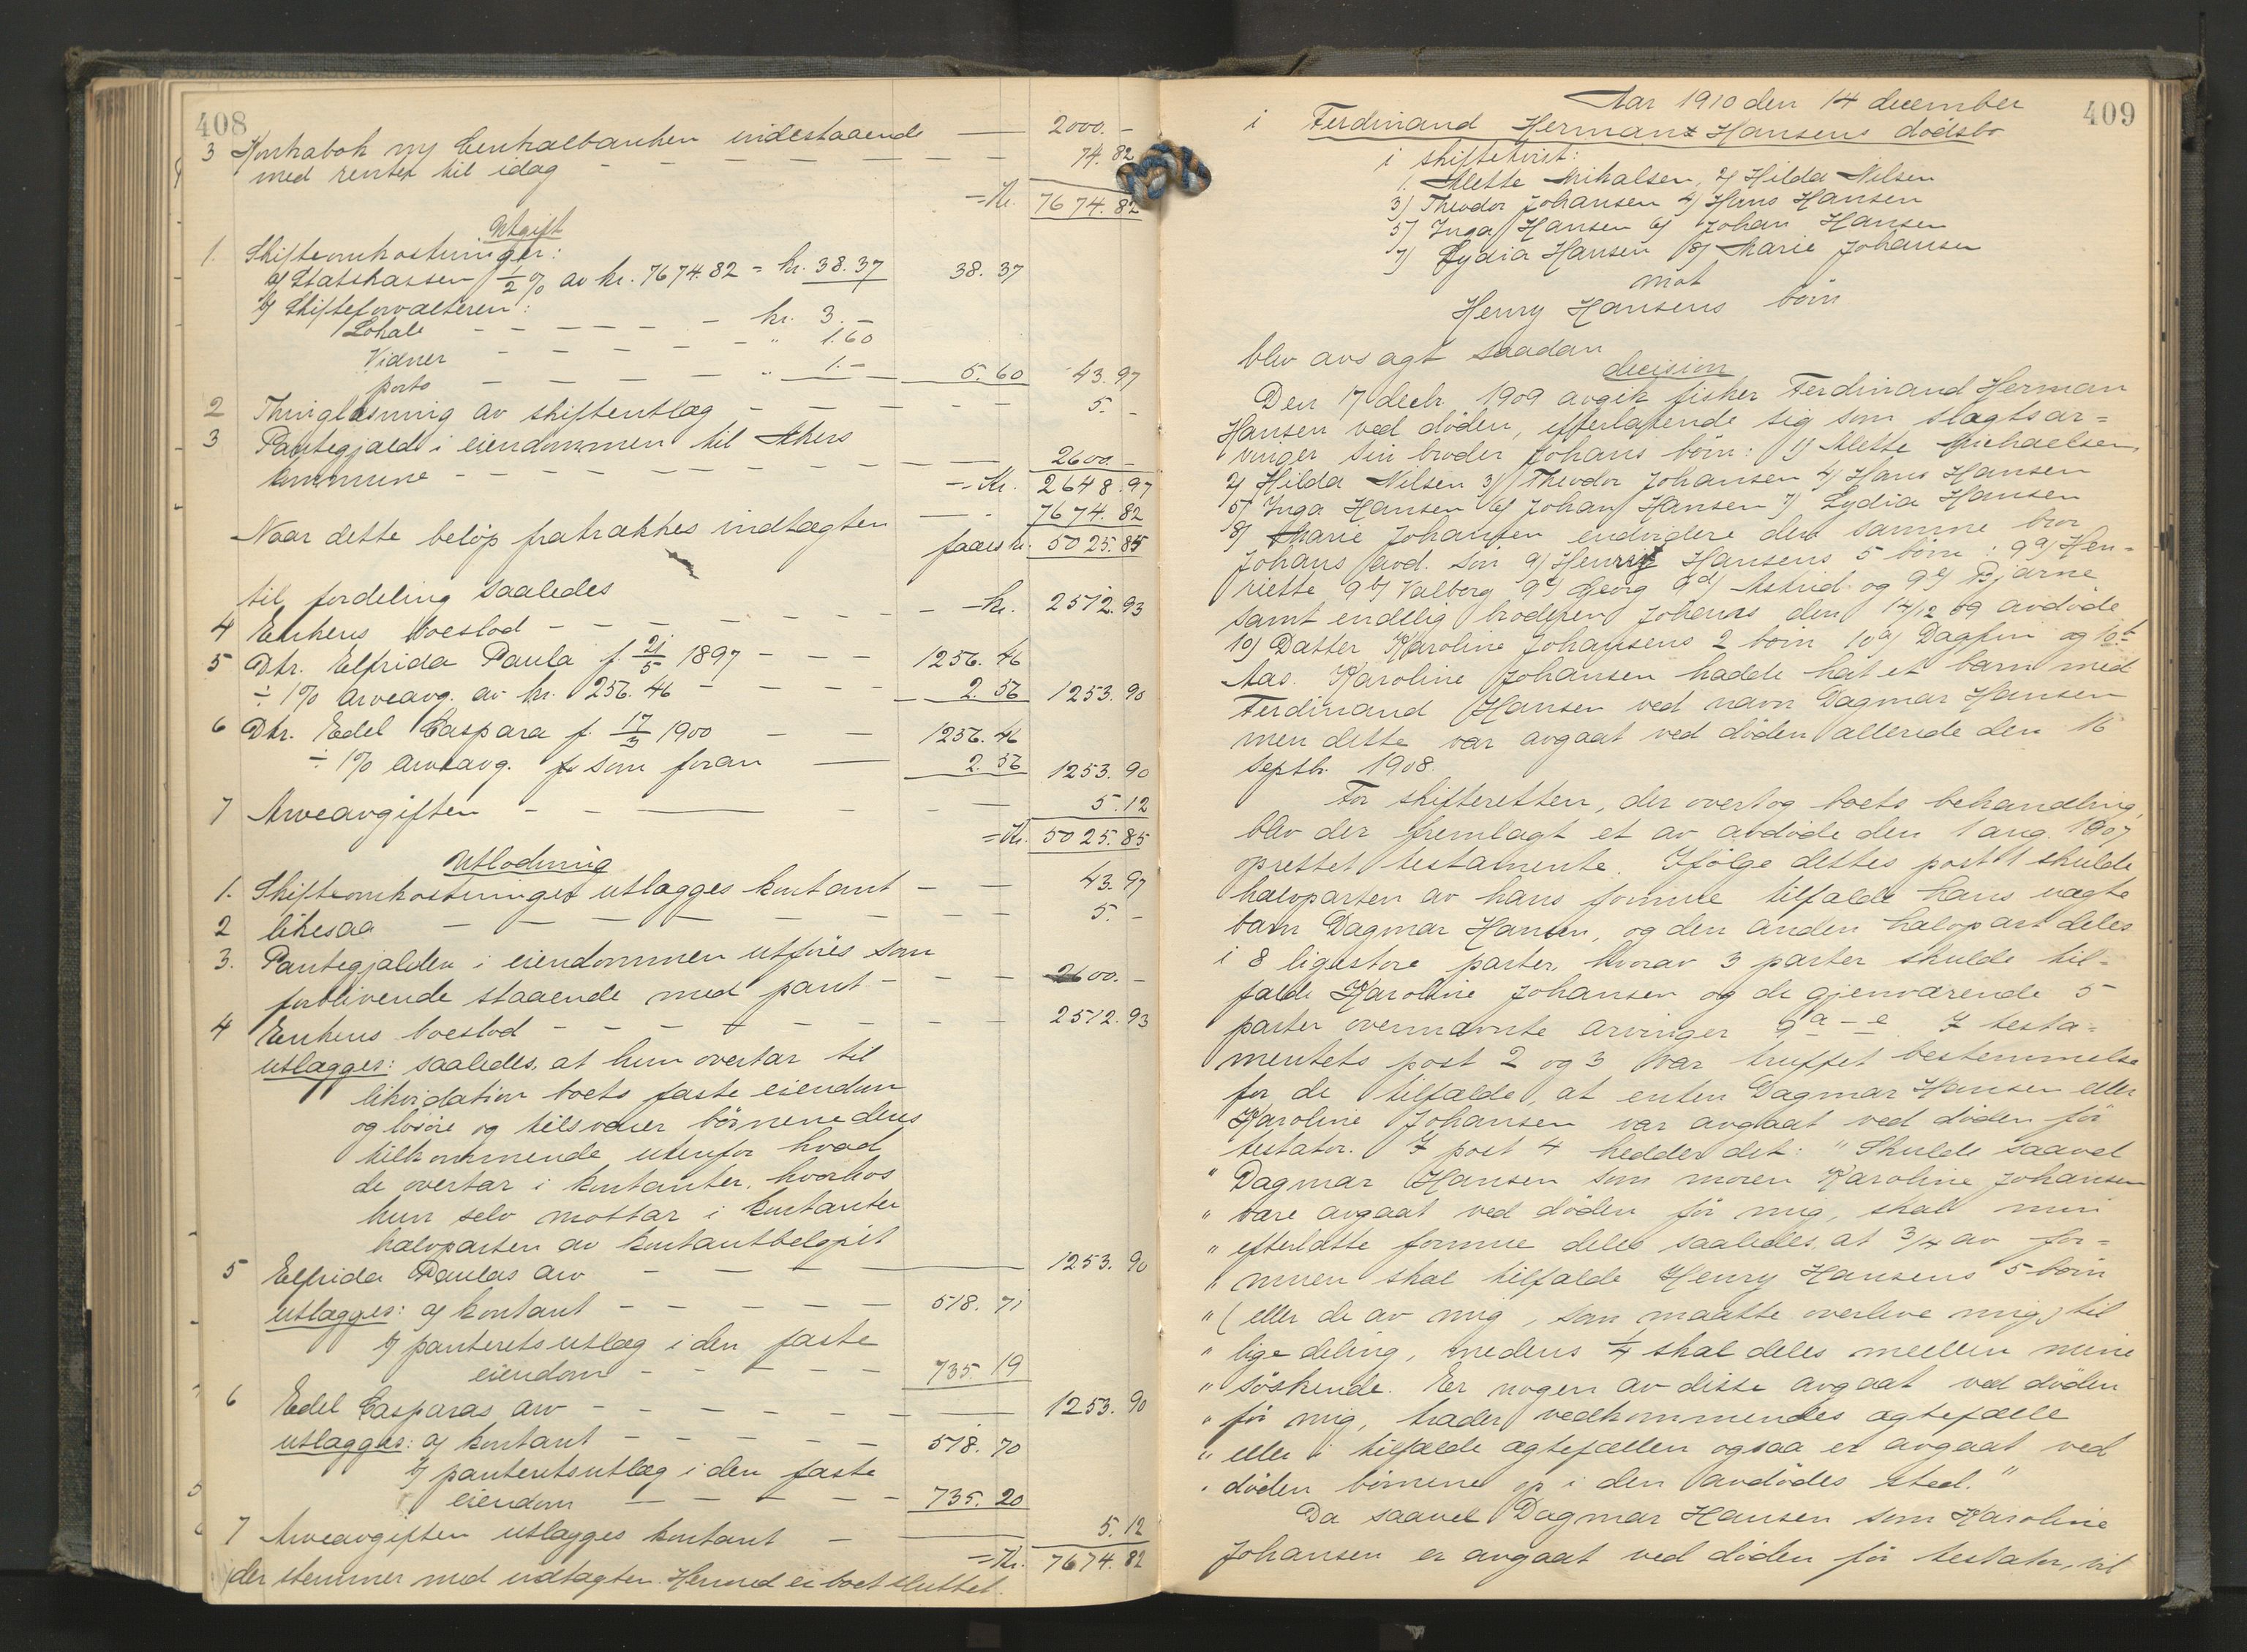 408
3 Kontrabok m/ Centralbanken indestaaende — 2000.–
med renter til idag – – – – – – 74.82
= Kr. 7674.82
Utgift
1. Skifteomkostninger:
a/ Statskassen 1/2 % av kr. 7674.82 = kr. 38.37 38.37
b/ Skifteforvalteren:
Lokale – – – – – kr. 3.–
Vidner – – – – – " 1.60
porto – – – – – " 1.– 5.60 43.97
2 Thinglæsning av skifteutlæg – – – – 5.–
3 Pantegjæld i eiendommen til Akers
kommune – – – – – – – 2600.–
= Kr. 2648.97
Naar dette beløp fratrækkes indtægten — " 7674.82
faaes kr. 5025.85
til fordeling saaledes
4 Enkens boeslod – – – – – – – kr. 2512.93
5 Dtr. Elfrida Paula f. 21/5 1897 – – – 1256.46
÷ 1% arveavg. av kr. 256.46 – – – – 2.56 1253.90
6 Dtr. Edel Caspara f. 17/3 1900 – – 1256.46
÷ 1% arveavg. som foran — 2.56 1253.90
7 Arveavgiften – – — – – – 5.12
= Kr. 5025.85
Utlodning
1. Skifteomkostninger utlægges kontant – – 43.97
2 likesaa – – – – – – – 5.–
3. Pantegjælden i eiendommen utføres som
forblivende staaende med pant – – – – 2600.–
4 Enkens boeslod – – – – – – – – 2512.93
utlægges: saaledes, at hun overtar til
likvidation boets faste eiendom
og løsøre og tilsvarer børnene deres
tilkommende utenfor hvad
de overtar i kontanter, hvorhos
hun selv mottar i kontanter
halvparten av kontantbeløpet
5 Elfrida Paulas arv – – – — 1253.90
utlægges: a/ kontant – – – – – 518.71
b/ panteretsutlæg i den faste
eiendom – – – – – 735.19
6 Edel Casparas arv – – – – – — 1253.90
utlægges: a/ kontant – – – – – 518.70
b/ panteretsutlæg i den faste
eiendom – – – – – 735.20
7 Arveavgiften utlægges kontant – — 5.12
= Kr. 7674.82
der stemmer med indtægten. Hermed er boet sluttet.
409
Aar 1910 den 14 december
i Ferdinand Herman Hansens dødsbo
i skiftetvist:
1. Alette Mikalsen, 2/ Hilda Nilsen
3/ Theodor Johansen 4/ Hans Hansen
5/ Inga Hansen 6/ Johan Hansen
7/ Lydia Hansen 8/ Marie Johansen
mot
Henry Hansens børn
blev avsagt saadan
decision
Den 17 decbr. 1909 avgik fisker Ferdinand Herman
Hansen ved døden, efterlatende sig som slægtsar=
vinger sin broder Johans børn: 1/ Alette Michaelsen,
2/ Hilda Nilsen 3/ Theodor Johansen 4/ Hans Hansen
5/ Inga Hansen 6/ Johan Hansen 7/ Lydia Hansen
8/ Marie Johansen endvidere den samme bror
Johans avd. søn 9/ Henry Hansens 5 børn: 9a/ Hen=
riette 9b/ Valborg 9c/ Georg 9d/ Astrid og 9e/ Bjarne
samt endelig broderen Johans den 14/12 09 avdøde
10/ Datter Karoline Johansens 2 børn 10a/ Dagfin og 10b
Aas. Karoline Johansen hadde hat et barn med
Ferdinand Hansen ved navn Dagmar Hansen
men dette var avgaat ved døden allerede den 16
septbr. 1908.
For skifteretten, der overtog boets behandling,
blev der fremlagt et av avdøde den 1 aug. 1907
oprettet testamente. Ifølge dettes post 1 skulde
halvparten av hans formue tilfalde hans uægte
barn Dagmar Hansen, og den anden halvpart deles
i 8 ligestore parter, hvorav 3 parter skulde til=
falde Karoline Johansen og de gjenværende 5
parter overnævnte arvinger 9 a – e. I testa=
mentets post 2 og 3 var truffet bestemmelse
for de tilfælde, at enten Dagmar Hansen eller
Karoline Johansen var avgaat ved døden før
testator. I post 4 hedder det: "Skulde saavel
" Dagmar Hansen som moren Karoline Johansen
" være avgaat ved døden før mig, skal min
" efterlatte formue deles saaledes, at 3/4 av for=
" muen skal tilfalde Henry Hansens 5 børn
" (eller de av mig, som maatte overleve mig) til
" lige deling, medens 1/4 skal deles mellem mine
" søskende. Er nogen av disse avgaat ved døden
" før mig, træder vedkommendes ægtefælle
" eller i tilfælde ægtefællen ogsaa er avgaat ved
" døden børnene op i den avdødes sted."
Da saavel Dagmar Hansen som Karoline
Johansen er avgaat ved døden før testator, vil